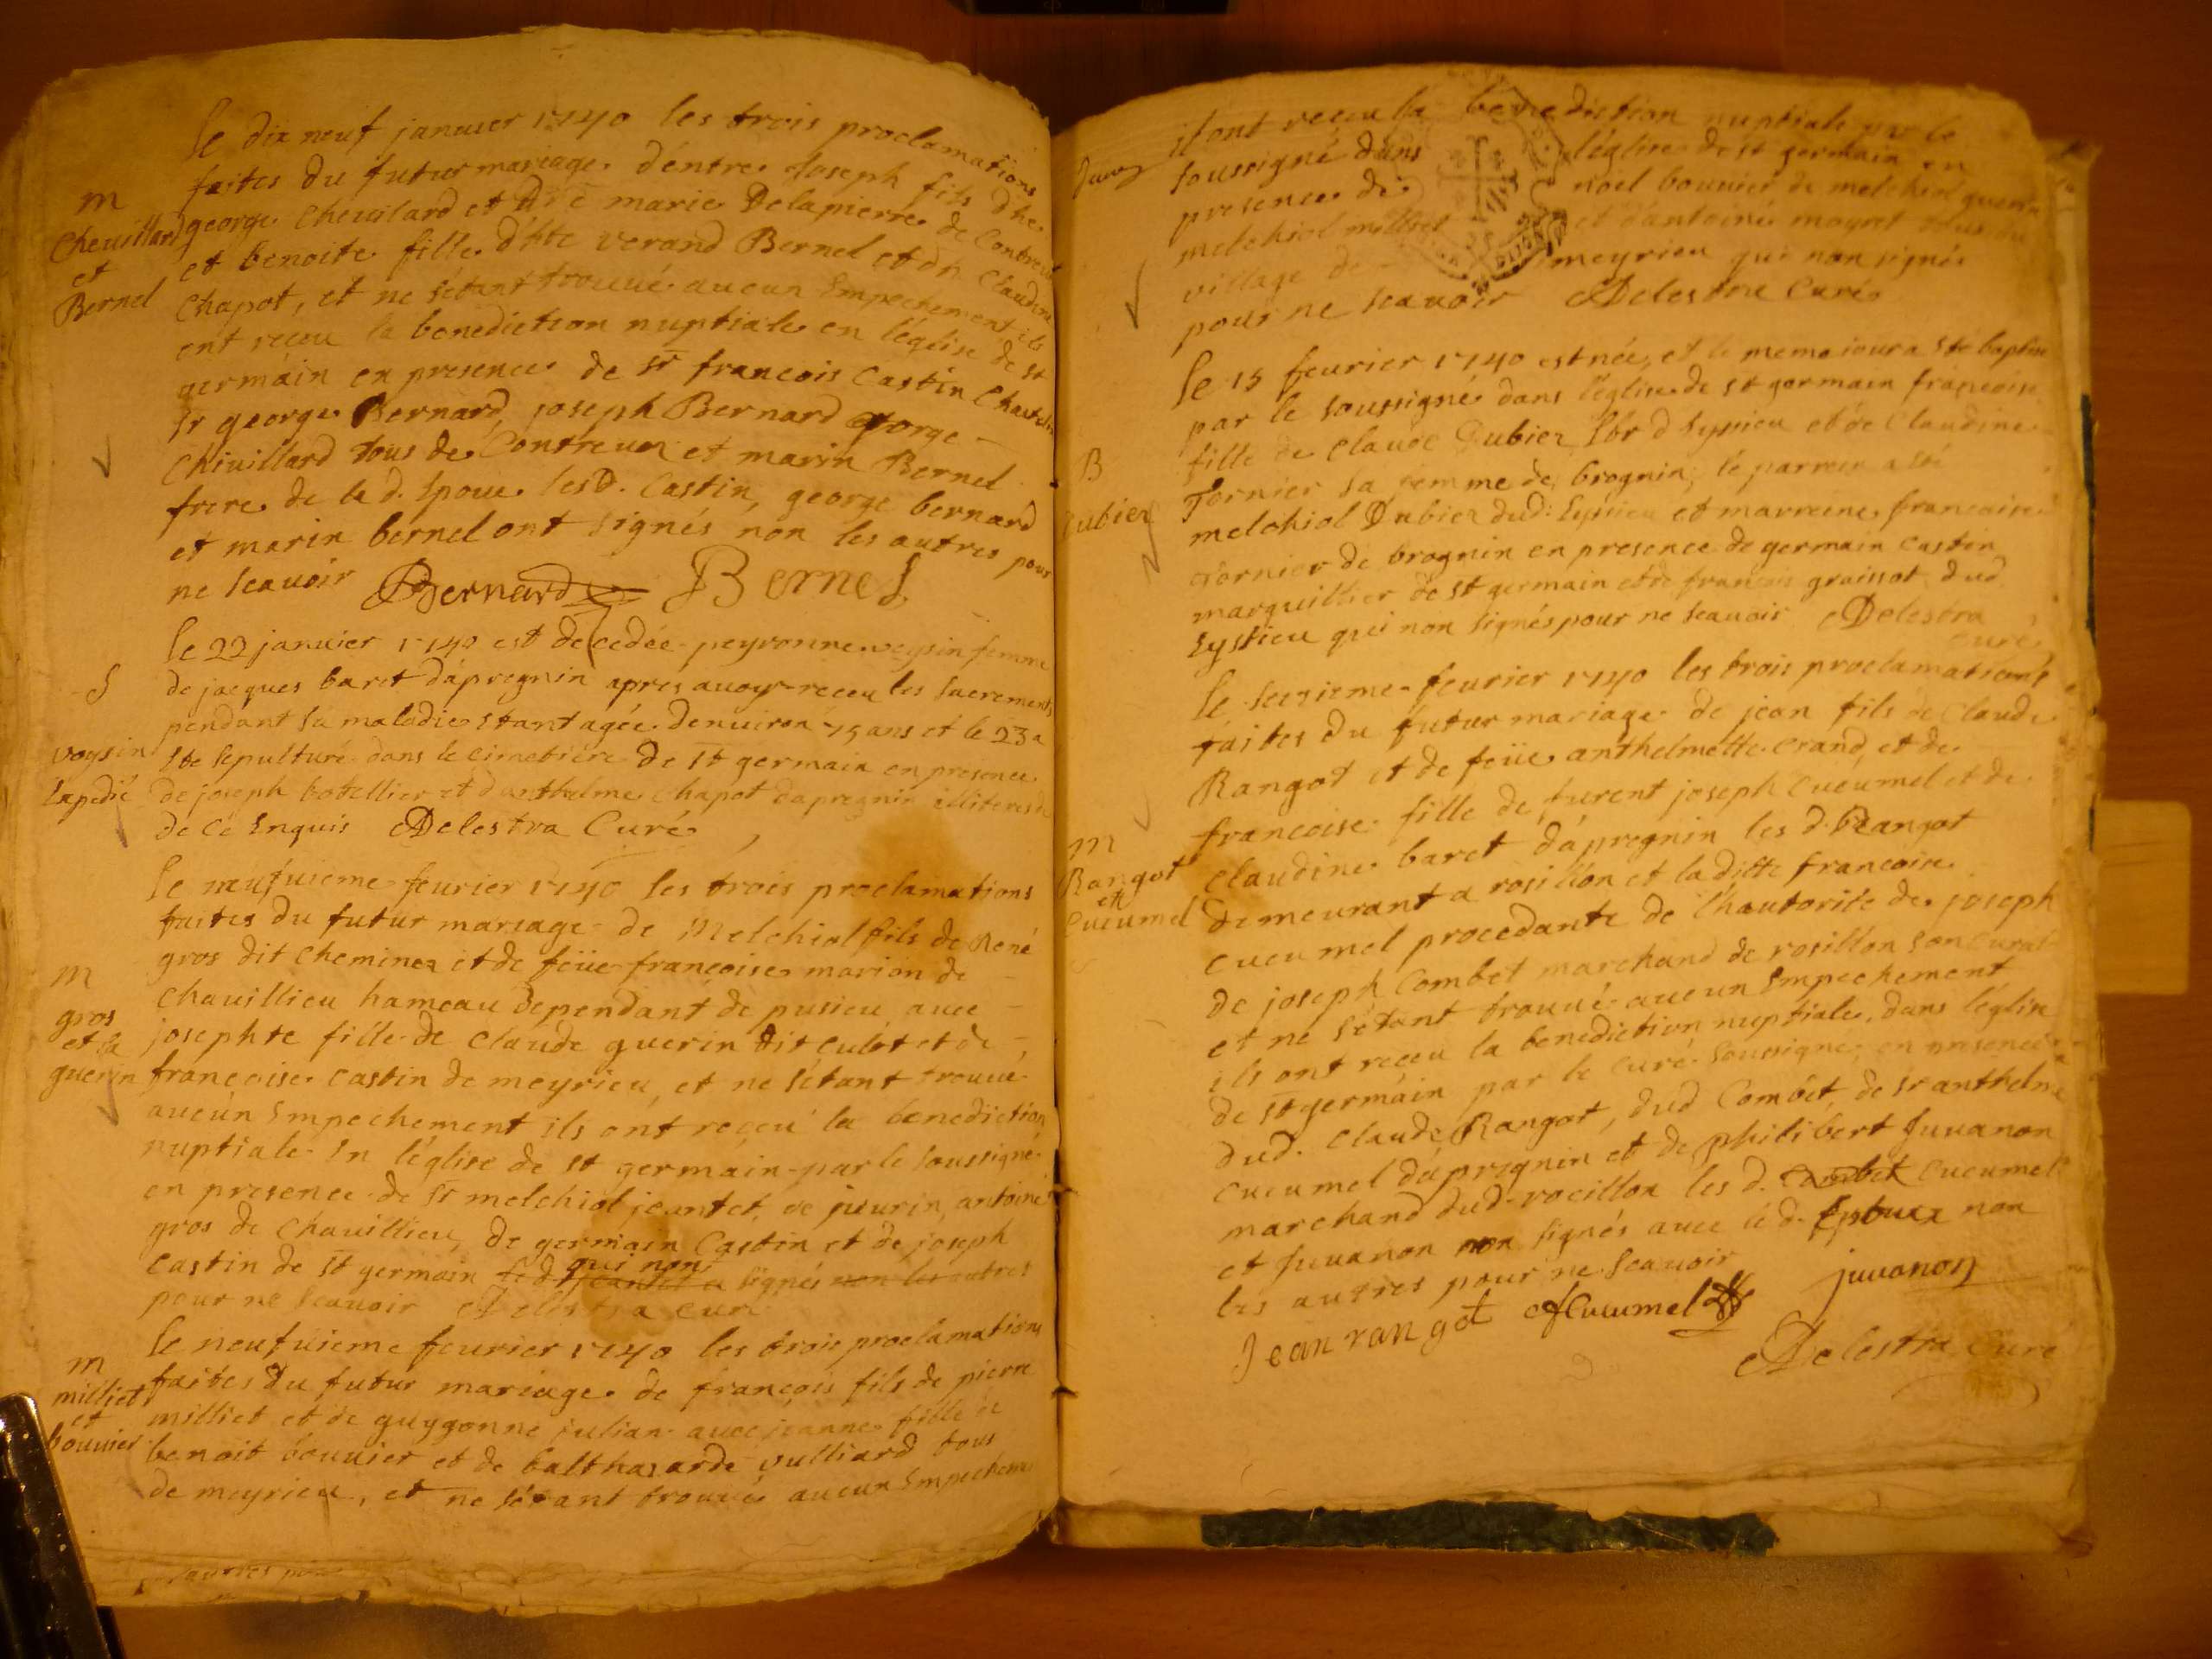 le dix neuf januier 1740 les trois proclamations
faites du futur mariage d'entre Joseph fils d'he
george cheuilard et marie Delapierre de Contreuez
et benoite fille d'hte verand Bernel et dh claudine
chapot, et ne s'étant trouué aucun Empechement ils
ont receu la benediction nuptiale en l'église de st
germain en presence de sr francois Castin Chatelin
sr george Bernard, joseph Bernard george
Chiuillard tous de Contreuez et marin Bernel
frere de la d. Epouse les d. Castin, george bernard
et marin bernel ont signés non les autres pour
ne scauoir Bernard Bernel
m
Cheuillard
et
Bernel
le 22 januier 1740 est decedée peyronne veysin femme
de jacques baret d'apregnin apres auoyr receu les sacrements
pendant sa maladie Etant agée denuiron 75 ans et le 23 a
Ete sepulturé dans le cimetiere de st germain en presence
de joseph botellier et d'anthelme chapot d'apregnin
de ce Enquis Delestra Curé
S
voysin
Expedié
le neufuieme feurier 1740 les trois proclamations
faites du futur mariage de Melchiol fils de René
gros dit cheminez et de feüe françoise marion de
Chauillieu hameau dependant de pusieu auec
josephte fille de claude guerin dit culot et de
francoise castin de meyrieu, et ne s'étant trouué
aucun Empechement ils ont reçeu la benediction
nuptiale En l'église de st germain par le soussigné
en presence de sr melchiol jeantet, de antoine
gros de Chauillieu, de germain Castin et de joseph
castin de st germain qui non signés autres
pour ne scauoir Delestra Curé
m
gros
et la
guerin
le neufuieme feurier 1740 les trois proclamations
faites du futur mariage de françois fils de pierre
milliet et de guygonne julian auec jeanne fille de
benoit bouuier et de balthazarde vulliard tous
de meyrieu, et ne s'étant trouué aucun Empechem
m
milliet
et
bouuier
ils ont receu la benediction nuptiale par le
soussigné dans l'église de st germain en
presence de noel bouuier de melchiol guerin
melchiol milliet et d'antoine moyret tous du
village de meyrieu qui non signés
pour ne scauoir Delestra Curé
le 15 feurier 1740 est née, et le meme iour a Ete baptise
par le soussigné dans l'église de st germain françoise
fille de claude Dubiez lbr d'Eysieu et de Claudine
Tornier sa femme de brognin, le parrein a Eté
melchiol Dubiez dud: Eyssieu et marreine francoise
Tornier de brognin en presence de germain caston
marguillier de st germain et de francois graissot dud
Eystieu qui non signés pour ne scauoir Delestra
Curé
B
Dubiez
le seizieme feurier 1740 les trois proclamations
faites du futur mariage de jean fils de Claude
Rangot et de feüe anthelmette Crand, et de
francoise fille de furent joseph Cucumel et de
claudine baret d'apregnin les d. Rangot
demeurant a rosillon et laditte francoise
cucumel procedante de l'hautorité de joseph
de joseph Combet marchand de rosillon son curat
et ne s'étant trouué aucun Empechement
ils ont receu la benediction nuptiale dans l'église
de st germain par le curé soussigné, en presence
dud. claude Rangot, dud Combet, de sr anthelme
cucumel d'apregnin et de philibert Juuanon
marchand dud rocillon les d. Combet Cucumel
et Juuanon signés auec le d. Epoux non
les autres pour ne scauoir
Jean rangot Cucumel juuanon
Delestra Curé
m
Rangot
et
Cucumel